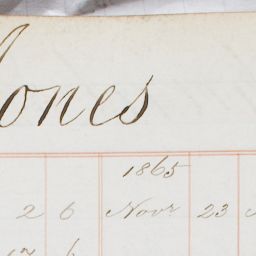 Jones
1865
2 6 Novr 23
17 6